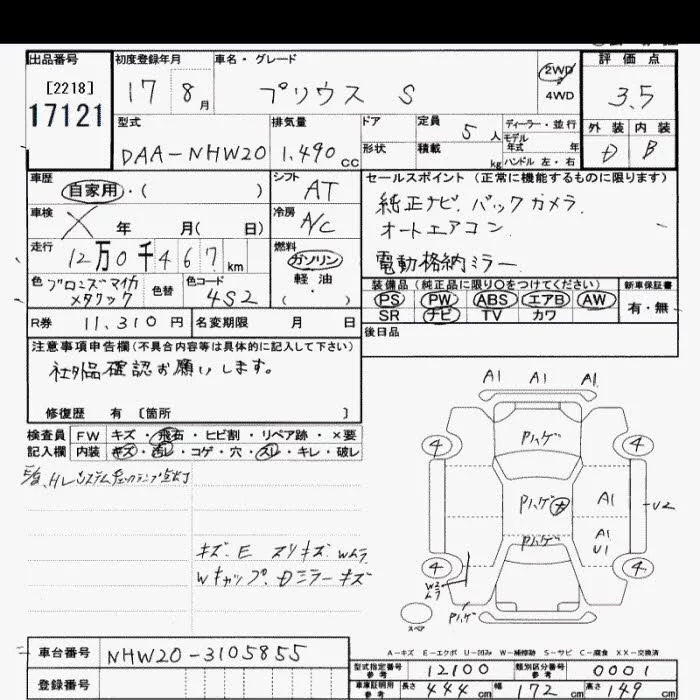 出品番号 初度登録年月 車名・グレード 評価点
[2218] 17 8月 プリウス S 2WD 4WD 3.5
17121
外装 内装
型式 排気量 ドア 定員 5人 ディーラー・並行
モデル年式 年
DAA-NHW20 1.490cc 形状 積載 kg ハンドル 左・右 D B
車歴 自家用・( ) シフト AT セールスポイント(正常に機能するものに限ります)
純正ナビ. バックカメラ.
車検 年 月( 日) 冷房 A/C オートエアコン.
走行 12万0千467km 燃料 ガソリン 電動格納ミラー.
軽油 ( )
色 ブロンズマイカメタリック 色替 色コード 4S2
装備品(純正品に限り〇をつけてください) 新車保証書
PS PW ABS エアB AW 有・無
SR ナビ TV カワ
R券 11,310円 名変期限 月 日 後日品
注意事項申告欄(不具合内容等は具体的に記入して下さい)
社外品確認お願いします。
修復歴 有 〔箇所 〕
検査員 FW キズ・飛石・ヒビ割・リペア跡・×要
記入欄 内装 キズ・汚レ・コゲ・穴・スレ・キレ・破レ
キズ. E スリキズ. Wムラ
Wキャップ. Dミラーキズ
A1 A1 A1
Pハゲ
4 4
Pハゲ A1 U2
Pハゲ A1 U1
4 4
W2 ムラ
Pハゲ
スペア
A-キズ E-エクボ U-凹み W-補修跡 S-サビ C-腐食 XX-交換済
車台番号 NHW20-3105855
登録番号
型式指定番号参考 12100 類別区分番号参考 0001
車庫証明用参考 長さ 444cm 幅 172cm 高さ 149cm